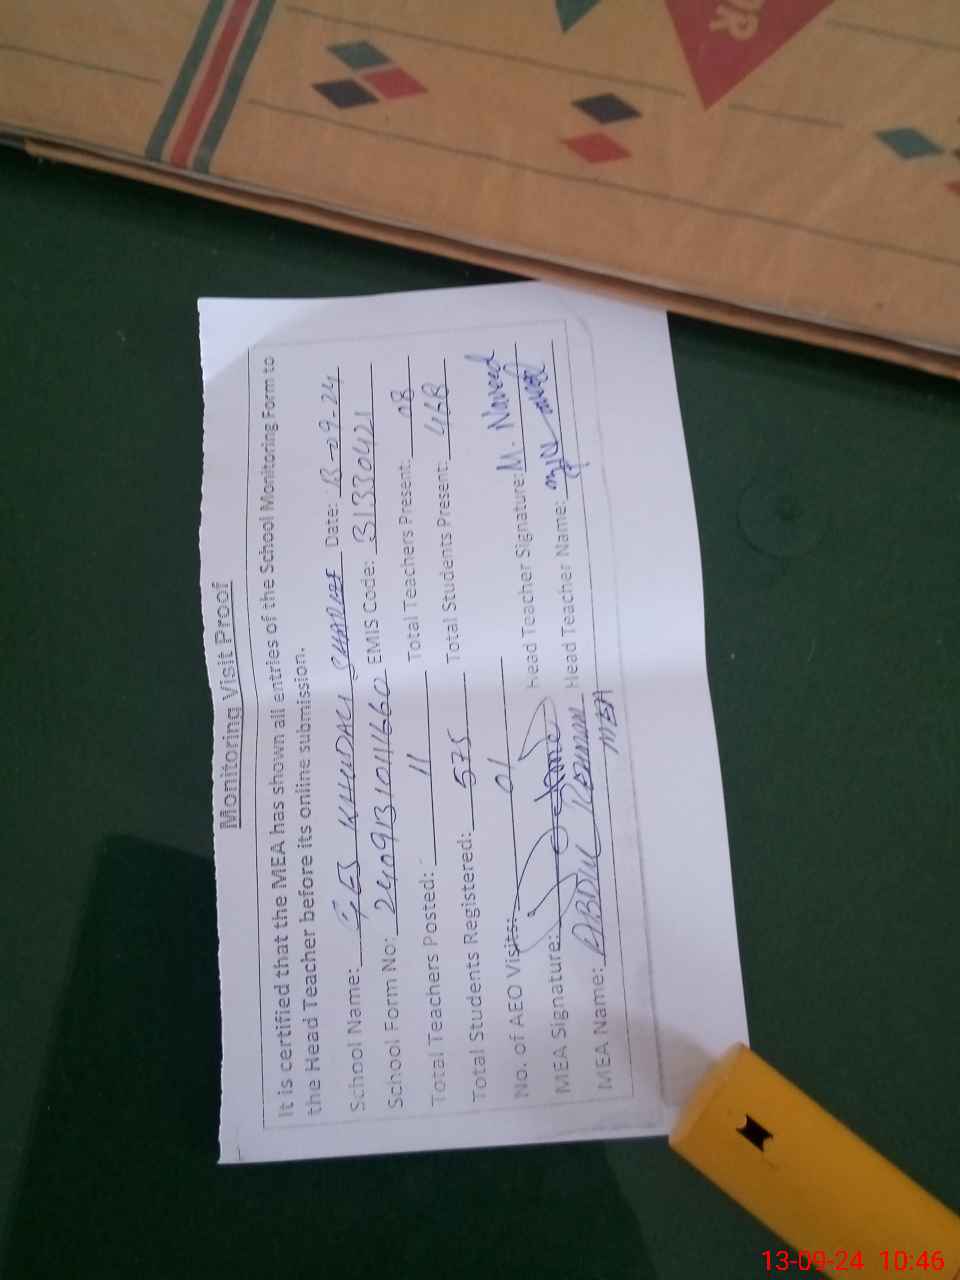 OR
Monitoring Visit Proof
It is certified that the MEA has shown all entries of the School Monitoring Form to
the Head Teacher before its online submission.
School Name: GES KHUDALI SHARIF Date: 13-09-24
School Form No: 24091310111660 EMIS Code: 31330421
Total Teachers Posted: 11 Total Teachers Present: 08
Total Students Registered: 575 Total Students Present: 468
No. of AEO Visits: 01
MEA Signature: Head Teacher Signature: M. Naveed
MEA Name: ABDUL REHMAN Head Teacher Name:
MEA
13-09-24 10:46